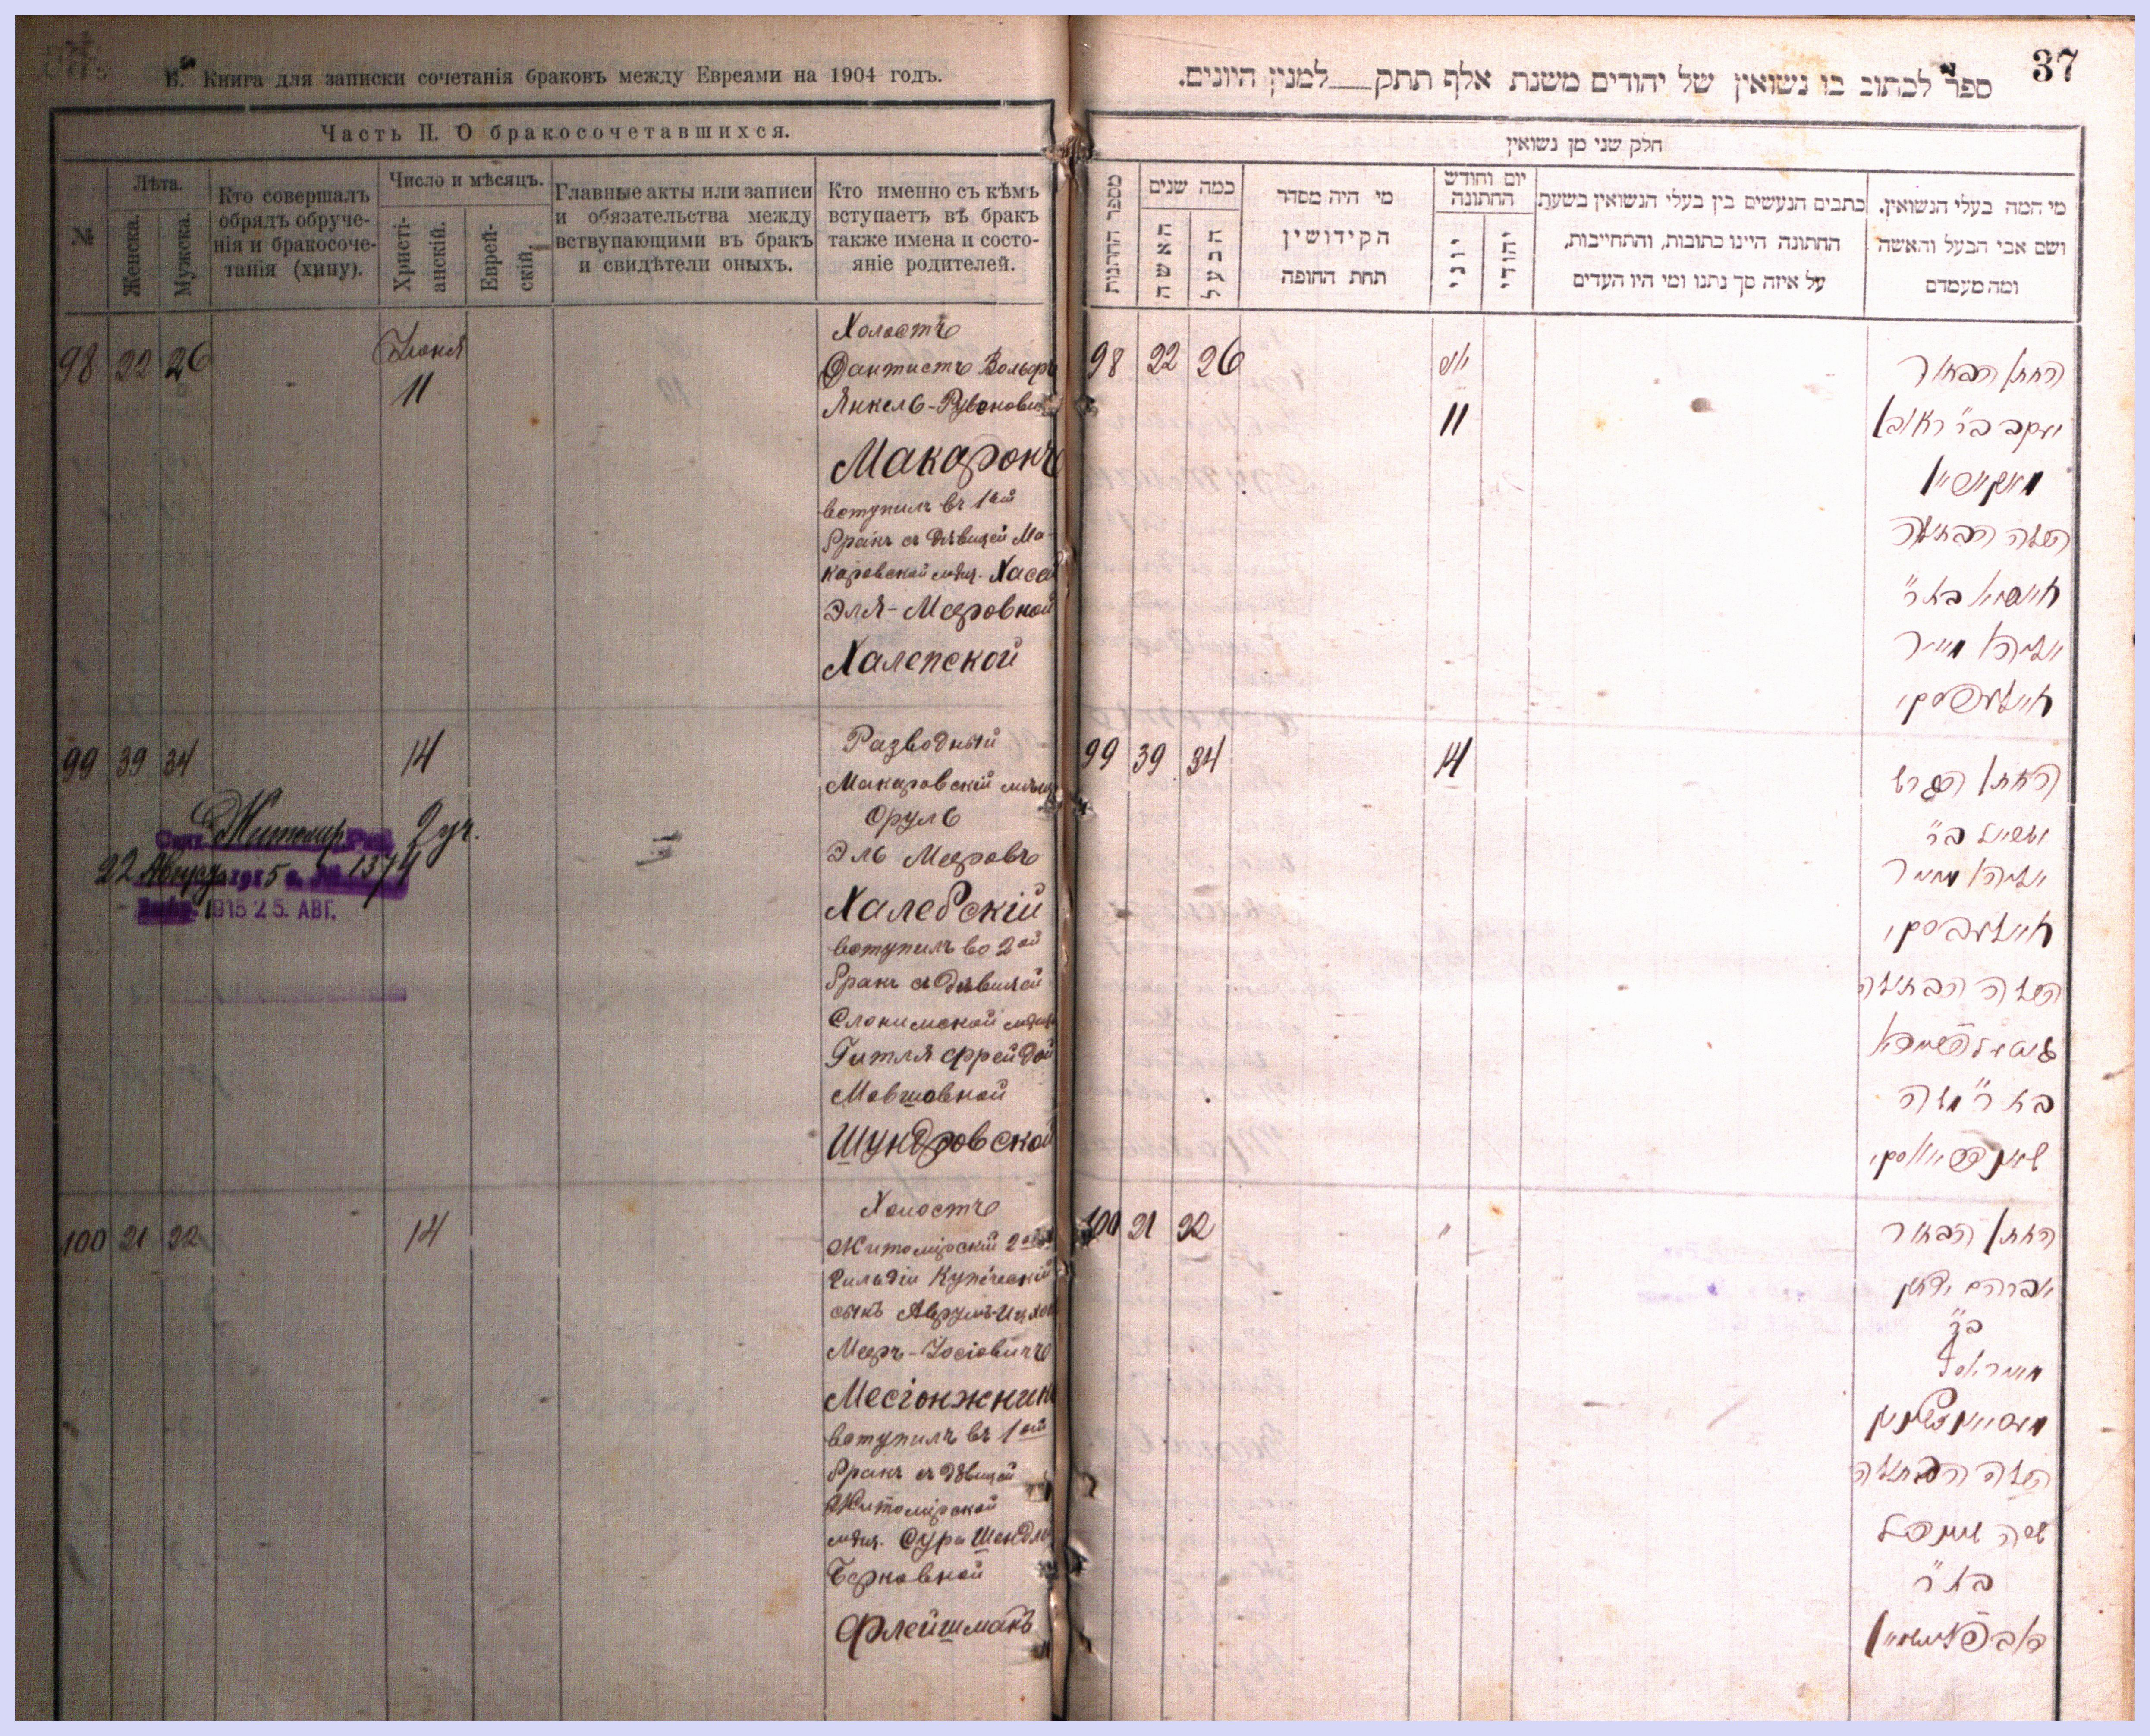 Б. Книга для записки сочетанія браковъ между Евреями на 1904 годъ.
Часть II. О бракосочетавшихся.
№
Лѣта.
Женска.
Мужска.
Кто совершалъ
обрядъ обруче-
нія и бракосоче-
танія (хипу).
Число и мѣсяцъ.
Христі-
анскій.
Еврей-
скій.
Главные акты или записи
и обязательства между
вствупающими въ бракъ
и свидѣтели оныхъ.
Кто именно съ кѣмъ
вступаетъ въ бракъ
также имена и состо-
яніе родителей.
98 22 26
Іюня
11
Холостъ
Дантистъ Вольфъ
Янкель-Рувенович
Макаронъ
вступилъ въ 1ый
бракъ съ дѣвицей Ма-
каровской мѣщ. Хасей
Эля-Мееровной
Халепской
99 39 34
14
Житомир 2 уч.
22 Август 1915 г. № 1374
1915 25. АВГ.
Разводный
Макаровскій мѣщ
Сруль
Эль Мееровъ
Халебскій
вступилъ во 2ой
бракъ съ дѣвицей
Слонимской мѣщ
Гитля Фрейдой
Мовшовной
Шундровской
100 21 22
14
Холостъ
Житомірскій 2ой
гильдіи купеческій
сынъ Аврумъ-Ицхок
Мееръ-Іосіовичъ
Месіонжник
вступилъ въ 1ый
бракъ съ дѣвицей
Житомірской
мѣщ. Сура Шендля
Берковной
Флейшманъ
37
ספר לכתוב בו נשואין של יהודים משנת אלף תתק למנין היונים.
חלק שני מן נשואין
מספר החתנות
כמה שנים
האשה
הבעל
מי היה מסדר
הקידושין
תחת החופה
יום וחודש
החתונה
יוני
יהודי
כתבים הנעשים בין בעלי הנשואין בשעת
החתונה היינו כתובות, והתחייבות,
על איזה סך נתנו ומי היו העדים
מי המה בעלי הנשואין.
ושם אבי הבעל והאשה
ומה מעמדם
98 22 26
יוני
11
החתן הבחור
יעקב בר ראובן
השנה הבתולה
בת ר
מאיר
99 39 34
14
החתן הגרוש
בר
השנה הבתולה
בת ר משה
100 21 22
"
החתן הבחור
אברהם יצחק
בר
השנה הבתולה
שרה שענדל
בת ר